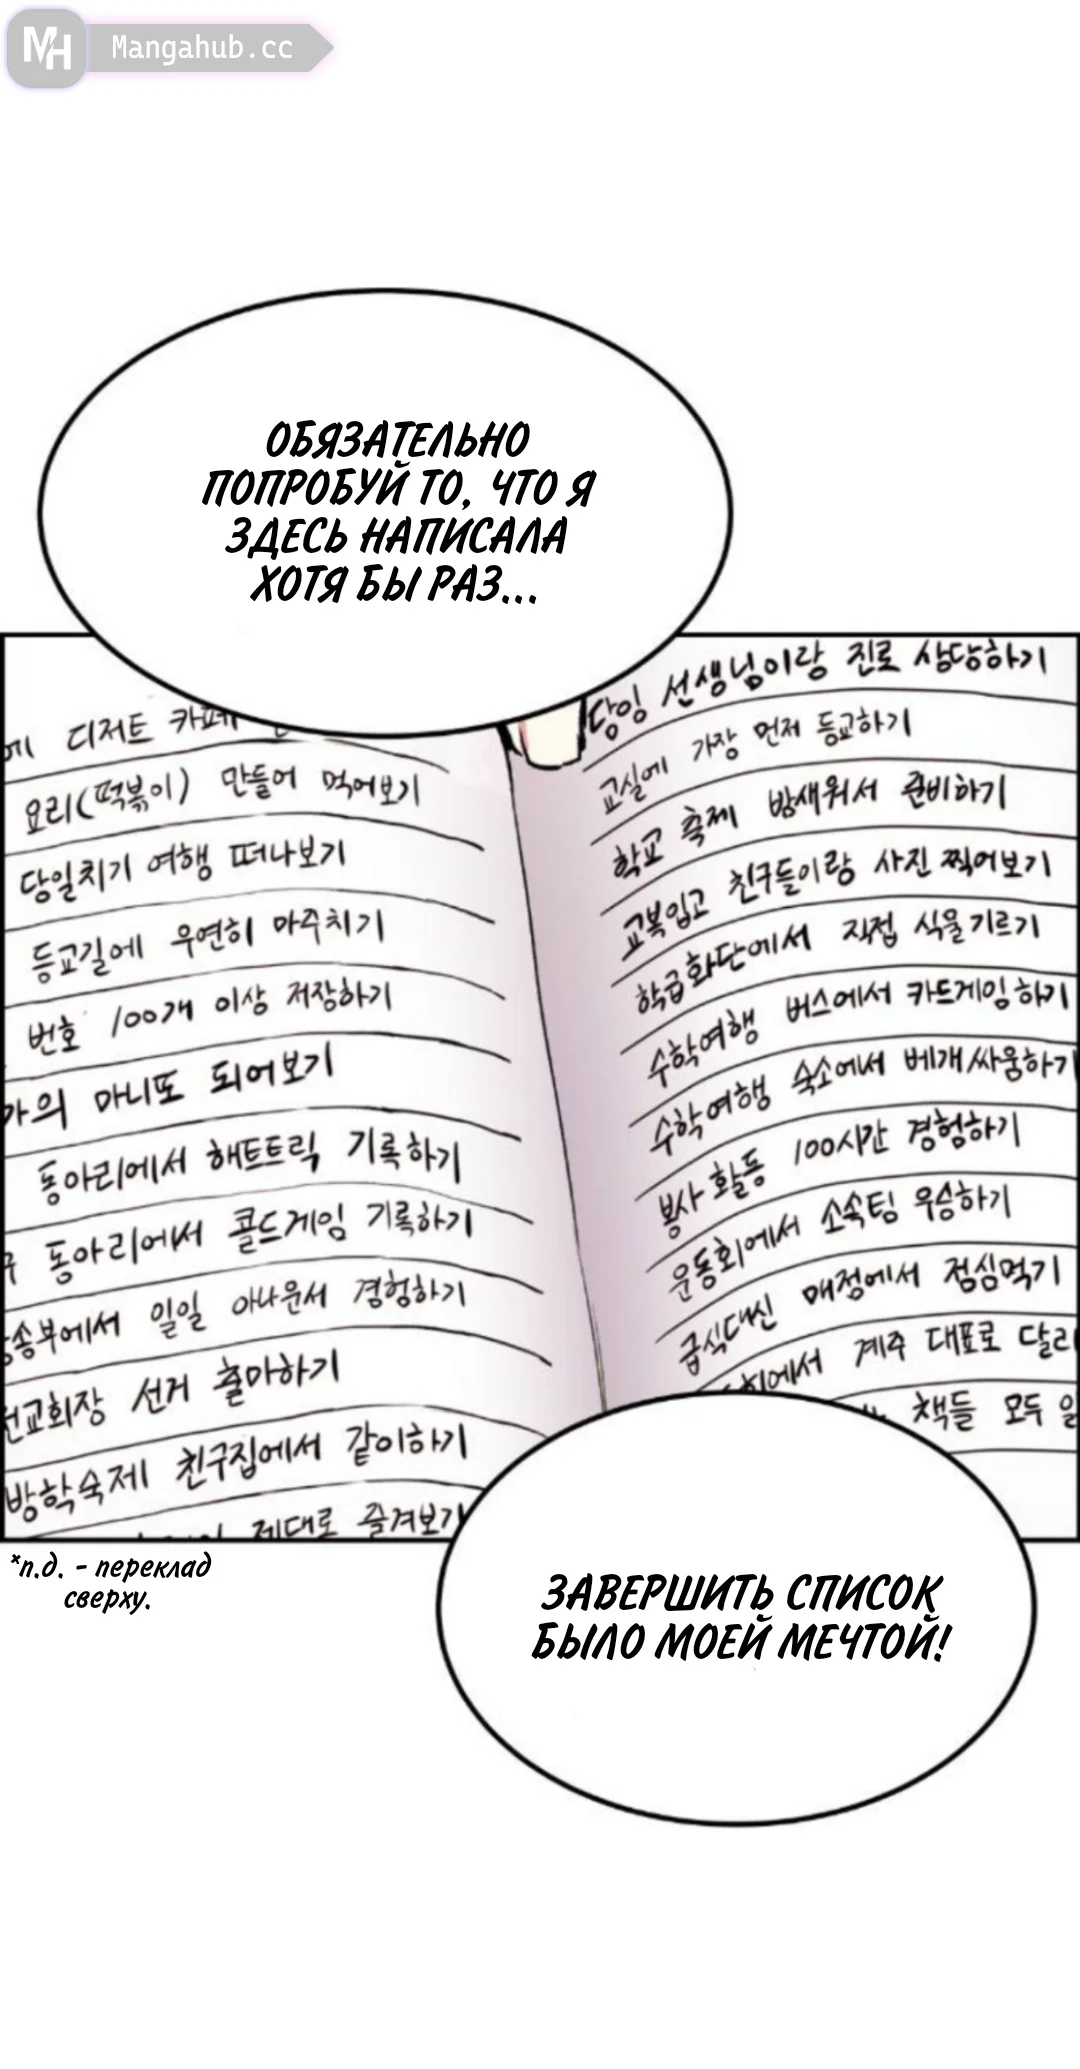 MH Mangahub.cc
ОБЯЗАТЕЛЬНО
ПОПРОБУЙ ТО, ЧТО Я
ЗДЕСЬ НАПИСАЛА
ХОТЯ БЫ РАЗ...
에 디저트 카페
요리(떡볶이) 만들어 먹어보기
당일치기 여행 떠나보기
등교길에 우연히 마주치기
번호 100개 이상 저장하기
마의 마니또 되어보기
동아리에서 해트트릭 기록하기
구 동아리에서 콜드게임 기록하기
방송부에서 일일 아나운서 경험하기
전교회장 선거 출마하기
방학숙제 친구집에서 같이하기
제대로 즐겨보기
담임 선생님이랑 진로 상담하기
교실에 가장 먼저 등교하기
학교 축제 밤새워서 준비하기
교복입고 친구들이랑 사진 찍어보기
학급화단에서 직접 식물기르기
수학여행 버스에서 카드게임하기
수학여행 숙소에서 베개싸움하기
봉사 활동 100시간 경험하기
운동회에서 소속팀 우승하기
급식대신 매점에서 점심먹기
에서 계주 대표로 달리
책들 모두 일
*п.д. - переклад
сверху.
ЗАВЕРШИТЬ СПИСОК
БЫЛО МОЕЙ МЕЧТОЙ!